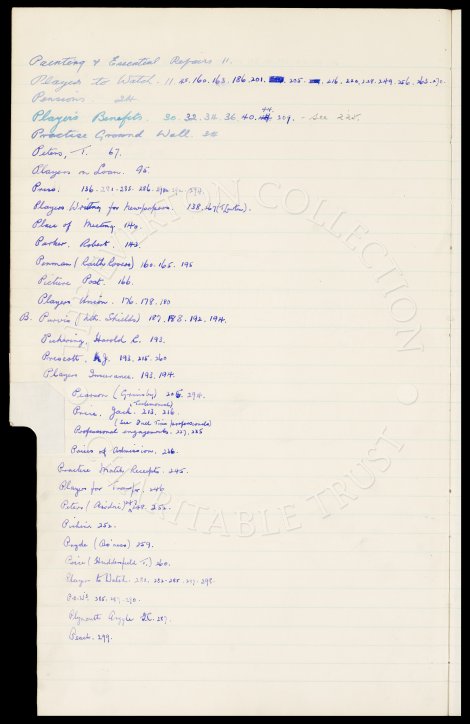 Painting & Essential Repairs 11.
Players to Watch. 11. 45. 160. 163. 186. 201. 205. 216. 220. 228. 249. 256. 263. 270.
Pensions. 24
Player's Benefits. 30. 32. 34. 36. 40. 44. 209. - See 228.
Practice Ground Wall. 34
Peters, T. 67.
Players on Loan. 95
Press. 136. 286.
Players Writing for Newspapers. 138.
Place of Meeting 140.
Parker, Robert. 143
Penman (Raith Rovers) 160. 165. 195
Picture Post. 166.
Players Union. 176. 178. 180
B. Purvis (Nth. Shields) 187. 188. 192. 194.
Pickering, Harold C. 193.
Prescott, J. 193. 215. 260
Players Insurance. 193. 194.
Pearson (Grimsby) 206. 294.
Price, Jack. (Testimonial) 213. 216.
(See Full Time professionals)
Professional engagements. 227. 228
Prices of Admission. 236.
Practice Match, Receipts. 245.
Players for Transfer. 246
Peters 248. 252.
252.
259.
Price (Huddersfield T.) 260.
Players to Watch. 282. 285. 298.
285. 290.
Plymouth Argyle FC. 287.
Peach. 299.
EVERTON COLLECTION CHARITABLE TRUST